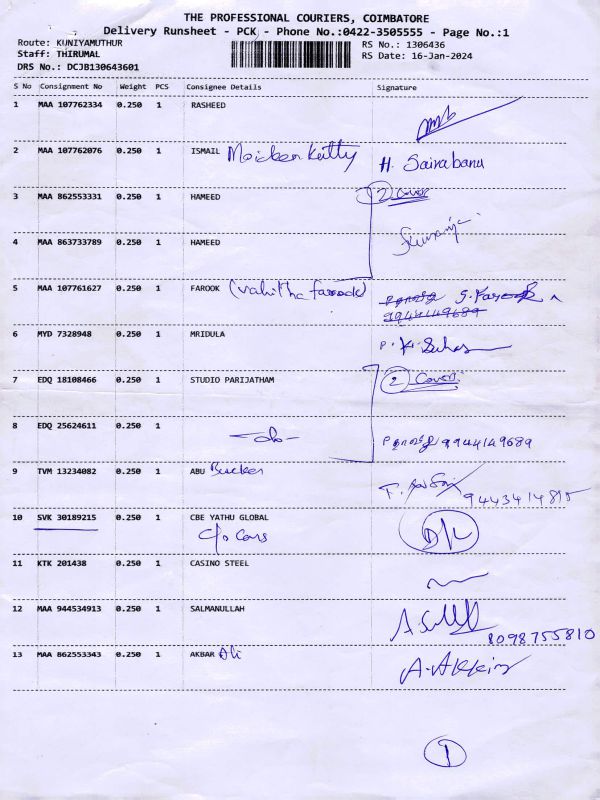 THE PROFESSIONAL COURIERS, COIMBATORE
Delivery Runsheet - PCK - Phone No.:0422-3505555 - Page No.:1
Route: KUNIYAMUTHUR RS No.: 1306436
Staff: THIRUMAL RS Date: 16-Jan-2024
DRS No.: DCJB130643601
S No Consignment No Weight PCS Consignee Details Signature
1 MAA 107762334 0.250 1 RASHEED
2 MAA 107762076 0.250 1 ISMAIL H. Sairabanu
3 MAA 862553331 0.250 1 HAMEED 2 Cover
4 MAA 863733789 0.250 1 HAMEED
5 MAA 107761627 0.250 1 FAROOK (vahitha farook) S. Farook
9944149689
6 MYD 7328948 0.250 1 MRIDULA
7 EDQ 18108466 0.250 1 STUDIO PARIJATHAM 2 Cover
8 EDQ 25624611 0.250 1 -do- 9944149689
9 TVM 13234082 0.250 1 ABU Bucker
9443414815
10 SVK 30189215 0.250 1 CBE YATHU GLOBAL D/L
C/o Cars
11 KTK 201438 0.250 1 CASINO STEEL
12 MAA 944534913 0.250 1 SALMANULLAH
8098755810
13 MAA 862553343 0.250 1 AKBAR Ali
1